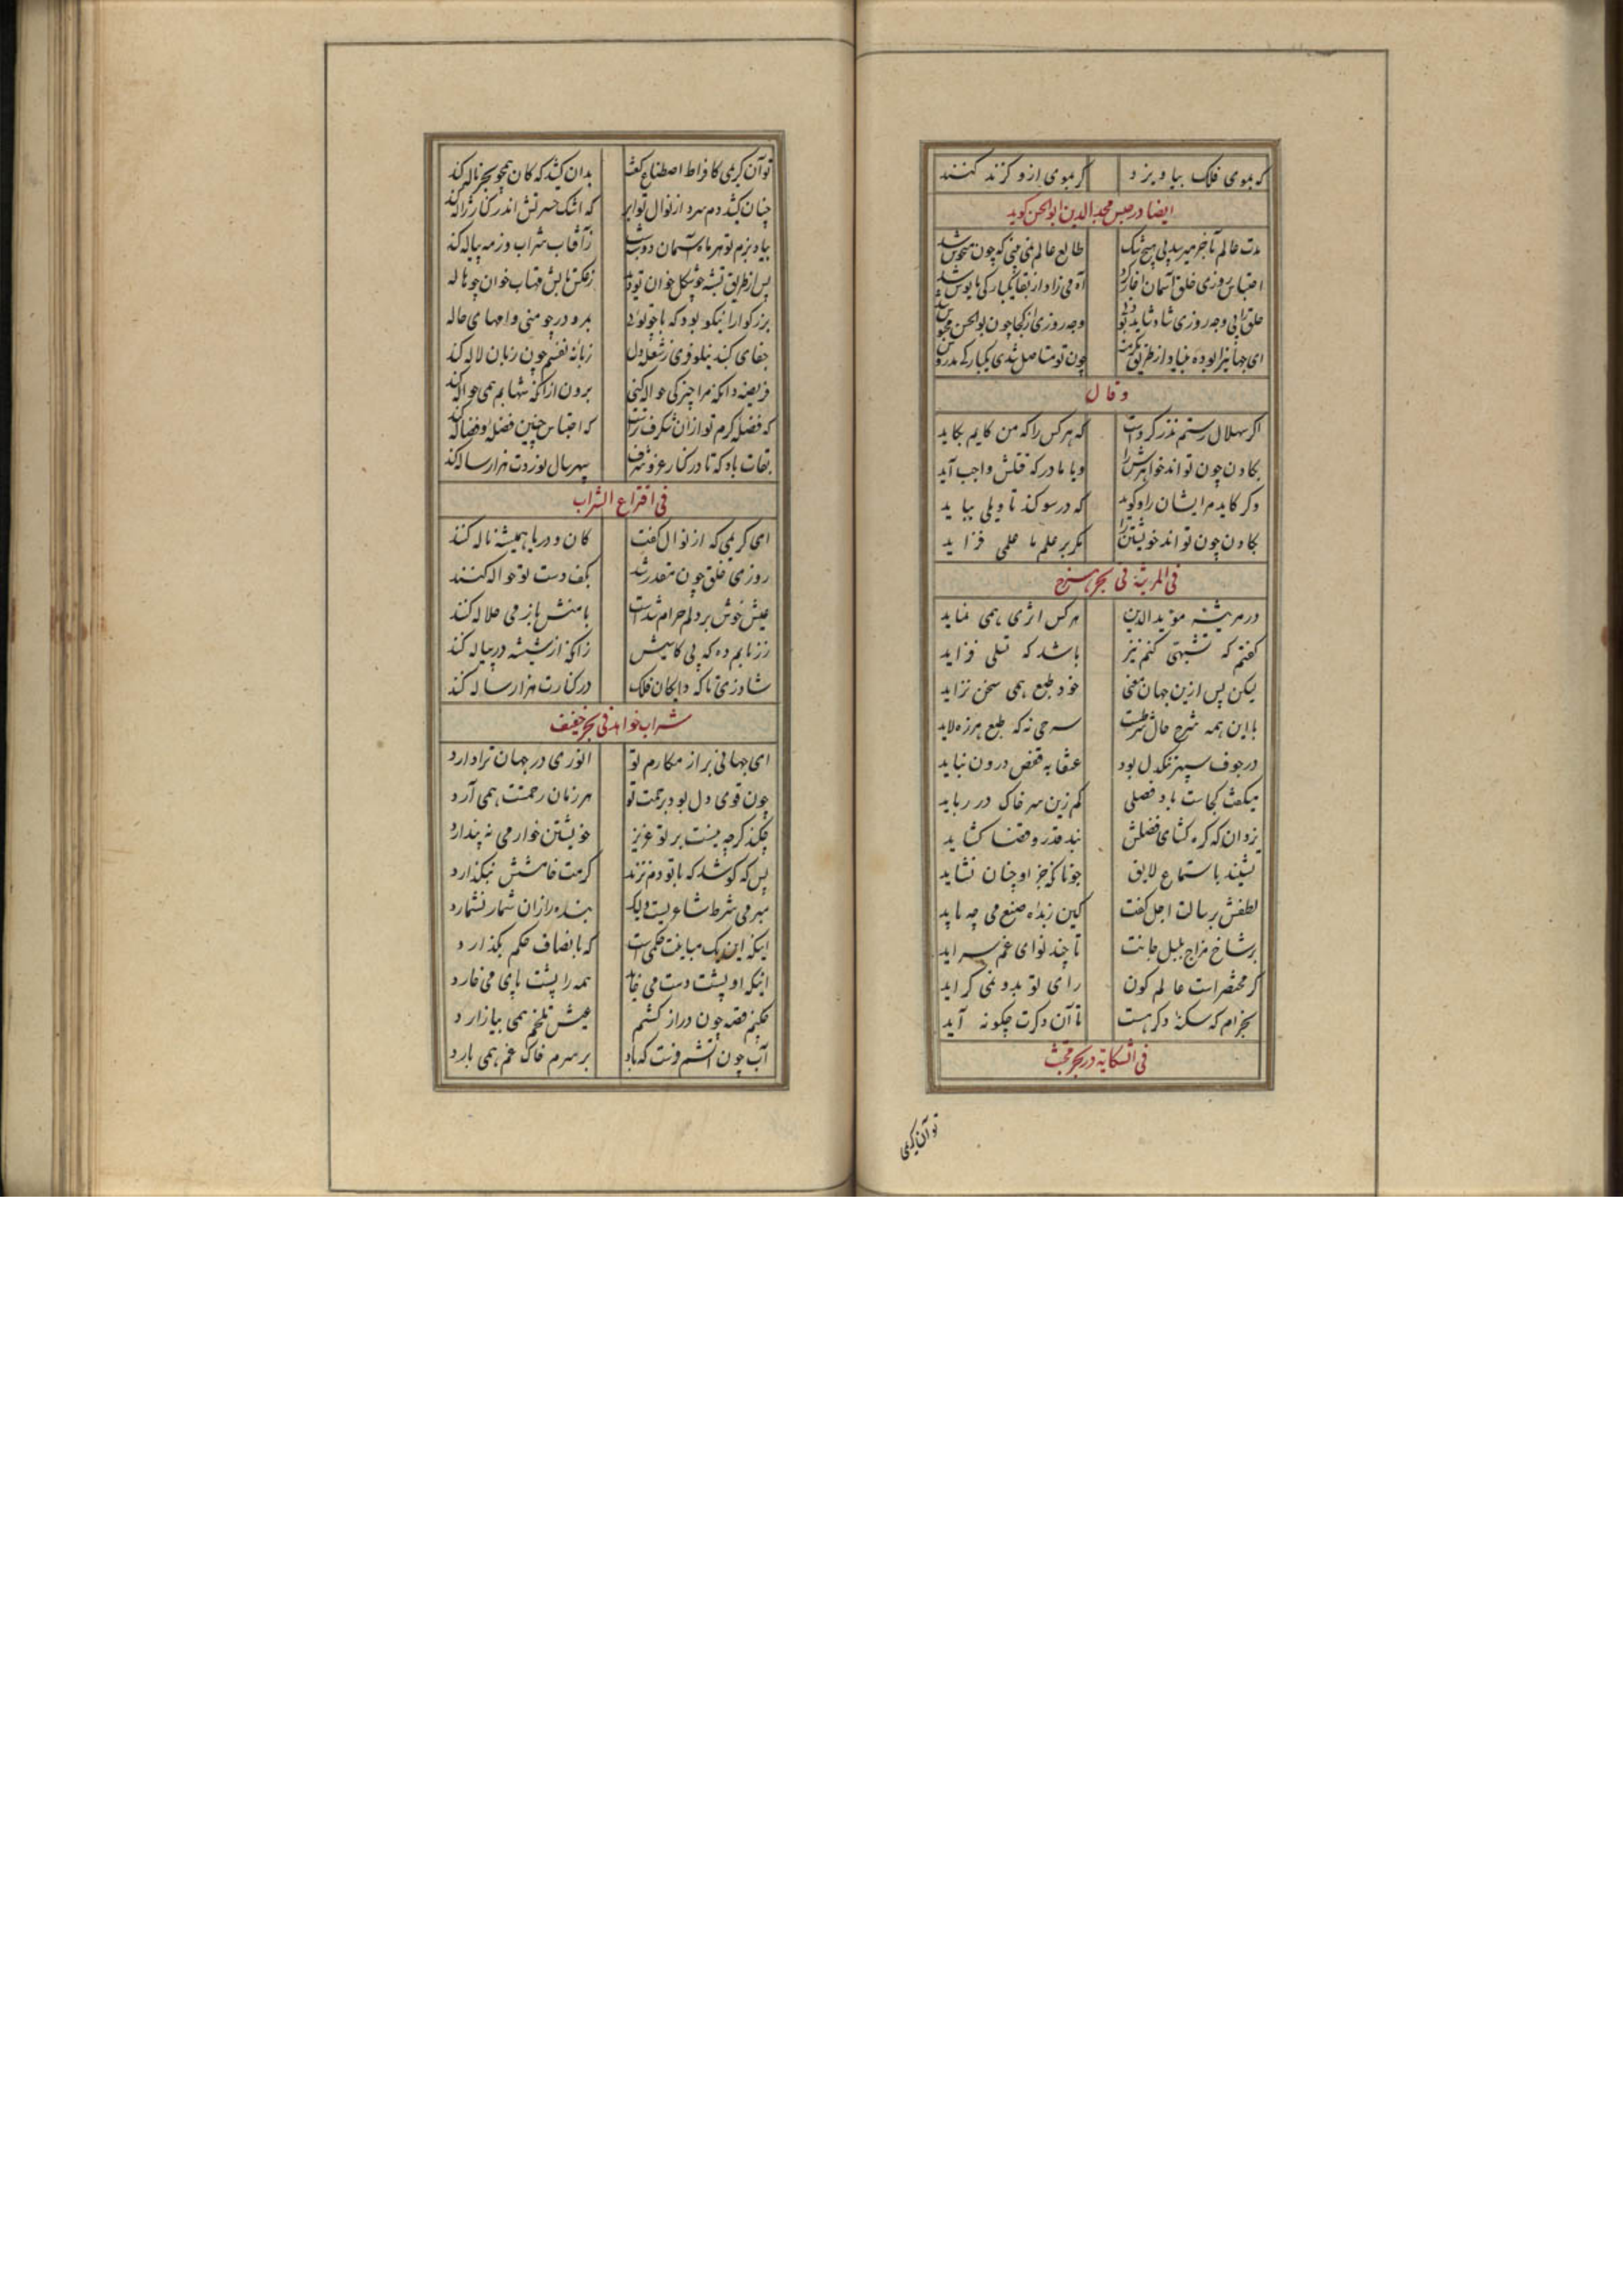 که بموی فلک بیاویزد گر بموی ازو گزند کنند
ایضا در حبس مجدالدین ابوالحسن گوید
مدت عالم بآخر میرسد بی هیچ شک طالع عالم نمی بینی که چون منحوس شد
احتباس روزی خلق آسمان آغاز کرد آدمی زاد از بقا یکبارگی مایوس شد
خلق را بی وجه روزی شاد شاید بود وجه روزی از کجا چون بوالحسن محبوس شد
ای جهانرا بوده بنیاد از طریق مکرمت چون تو مستاصل شدی یکبارگی مدروس
وقال
اگر سهلال رستم نذر کردست که هر کس را که من گایم بگاید
گادن چون تواند خواهرش را ویا مادر که قتلش واجب آید
وگر گاید مر ایشان را و گوید که در سوگند تاویلی بباید
گادن چون تواند خویشتن را مگر بر علم ما علمی فزاید
فی المرثیة فی بحر هزج
در مرثیه مؤید الدین هرکس اثری همی نماید
گفتم که تشبهی کنم نیز باشد که تسلی فزاید
لیکن پس ازین جهان معنی خود طبع همی سخن نزاید
با این همه شرح حال شرطست سرحی نه که طبع هرزه لاید
در جوف سپهر تنگدل بود عنقا به قفص درون نیاید
میگفت کجاست باد فضلی کم زین سر خاک در رباید
یزدان که گره گشای فضلش بند قدر و قضا گشاید
بشنید باستماع لایق چونانکه جز او چنان نشاید
لطفش برسالت اجل گفت کین زبده صنع می چه باید
بر شاخ مزاج بلبل جانت تا چند نوای غم سراید
گر مختصر است عالم کون رای تو بدو نمی گراید
بخرام که سکنۀ دگر هست تا آن دگرت چگونه آید
فی الشکایة در بحر مجتث
تو آن کریمی
تو آن کریمی کافراط اصطناع کفت بدان کشد که کان همچو بحر ناله کند
چنان کشد دم سرد از نوال تو ابر که اشک حسرتش اندر کنار ژاله کند
بیاد بزم تو هر ماه آسمان دو شب ز آفتاب شراب و ز مه پیاله کند
پس از طریق تشبه چو شکل خوان تو دید ز عکس تابش مهتاب خوان چو هاله
بزرگوارا نیکو بود که با چو تویی بمرد در چو منی وامهای حاله
جفای گنبد نیلوفری ز شعله دل زبانه نفسم چون زبان لاله کند
فریضه دانکه مرا چیزکی حواله کنی برون از آنکه شهابم همی حواله کند
که فضله کرم تو از آن شگرف ترست که احتباس چنین فضله و فضاله کند
بقات باد که تا در کنار عز و شرف سپهر سال نوردت هزار ساله کند
فی اقتراع الشراب
ای کریمی که از نوال کفت کان و دریا همیشه ناله کنند
روزی خلق چون مقدر شد بکف دست تو حواله کنند
عیش خوش بر دلم حرام شدست با منش باز می حلاله کند
رزنابم ده که بی کابیش زانکه از شیشه در پیاله کند
شاد زی تا که دایگان فلک در کنارت هزار ساله کند
شراب خواهد فی بحر خفیف
ای جهانی پر از مکارم تو انوری در جهان ترا دارد
چون قوی دل بود برحمت تو هر زمان رحمتت همی آرد
چکند گرچه نیست بر تو عزیز خویشتن خوار می نه پندارد
پس که کوشد که با تو دم نزند کرمت خامشش نبگذارد
مبرمی شرط شاعریست ولیک بنده را زان شمار نشمارد
اینکه این یک مباینت حکمی است که بانصاف حکم بگذارد
اینکه او پشت دست می خاید همه را پشت پای می خارد
چکنم قصه چون دراز کشم عیش تلخم همی بیازارد
آب چون آتشم فرست که باد بر سرم خاک غم همی بارد